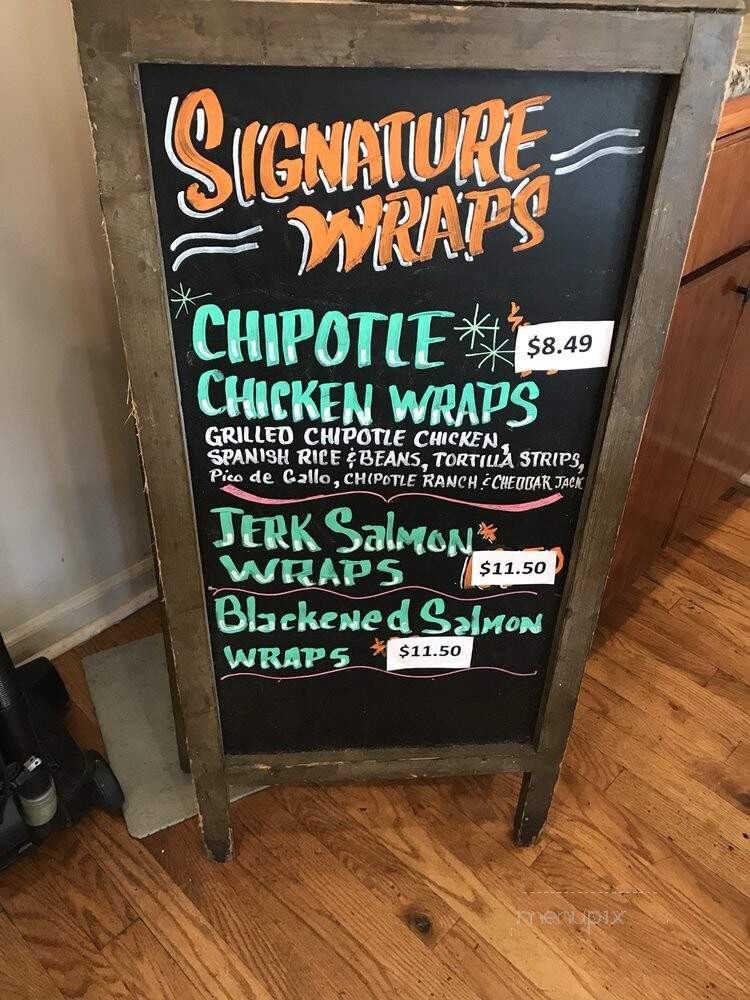 SIGNATURE
WRAPS
CHIPOTLE $8.49
CHICKEN WRAPS
GRILLED CHIPOTLE CHICKEN,
SPANISH RICE & BEANS, TORTILLA STRIPS,
Pico de Gallo, CHIPOTLE RANCH & CHEDDAR JACK
JERK SALMON
WRAPS $11.50
Blackened SALMON
WRAPS $11.50
menupix